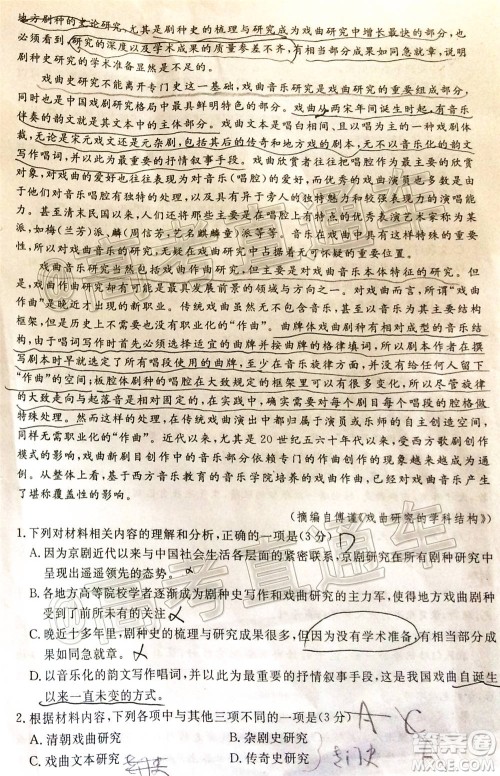 地方剧种的史论研究,尤其是剧种史的梳理与研究成为戏曲史研究中增长最快的部分,也
必须看到,研究的深度以及学术成果的质量参差不齐,有相当部分成果如同急就章,说明
剧种史研究的学术准备显然是不足的。
戏曲史研究不能离开专门史这一基础,戏曲音乐研究是戏曲研究的重要组成部分,
同时也是中国戏剧研究格局中最具鲜明特色的部分。戏曲从两宋年间诞生时起,有音乐
伴奏的韵文就是其文本中的主体部分。戏曲文本是唱白相间、以唱为主的一种戏剧体
裁,无论是宋元戏文还是元杂剧,包括其后的传奇和地方戏的剧本,无不以音乐化的韵文
写作唱词,并以此为最重要的抒情叙事手段。戏曲音乐及其演唱因此成为最受欣赏的
对象,对戏曲的爱好也往往因此体现为对音乐唱腔的爱好。而优秀的戏曲演员也多数是由
于对音乐唱腔有独特的处理,以及具有异于旁人的优美的或独具魅力的演唱能
力。甚至清末民国以来,人们往往将具有突出特点的优秀表演艺术家称为某
派,如梅(兰芳)派、麟(周信芳,艺名麒麟童)派等等。音乐在戏曲中具有这样特殊的重要
性,所以对戏曲音乐的研究,无疑在戏曲研究中占据着无可怀疑的重要位置。
戏曲音乐研究当然包括对戏曲音乐本体特征的研究。但
是,戏曲研究不应忽视的最具前景的领域与方向之一。对戏曲而言,所谓“戏曲
作曲”是晚近才出现的新职业。传统戏曲虽然不无音乐,但是从戏曲音乐的主体结构
框架,但是历史上不需要也没有职业化的“作曲”。曲牌体戏曲剧种有相对成型的音乐结
构,由于唱词写作时首先必须选择适宜的曲牌并按曲牌的格律填词,所以剧本作者在撰
写剧本时早就选定了所有唱段使用的曲牌,至少在音乐旋律方面,并没有给任何人留下
“作曲”的空间;板腔体剧种的唱腔在大致规定的框架里可以有很多变化,所以尽管旋律
的大致走向与起落音是相对固定的,在实践中,确实需要对每个唱段的腔格做
特殊处理。然而这样的处理,在传统戏曲中全部都归属于演员或乐师的自主创造空间,
同样无需职业化的“作曲”。近代以来,尤其是 20 世纪五六十年代以来,受西方歌剧创作模
式的影响,戏曲新剧目创作中的音乐部分由专业作曲创作的现象越来越成为普遍的通
则。从整体上看,基于西方音乐教育的音乐学院培养的戏曲作曲,已经对戏曲音乐产生
了堪称覆盖性的影响。
(摘编自傅谨《戏曲研究的学科结构》)
1.下列对材料相关内容的理解和分析,正确的一项是(3 分) D
A.因为京剧近代以来与中国社会生活各层面的紧密联系,京剧研究在所有剧种研究中
呈现出遥遥领先的态势。
B.各地方高等院校学者逐渐成为剧种史写作和戏曲研究的主力军,使得地方戏曲剧种
受到了前所未有的关注。
C.晚近十多年里,剧种史的梳理与研究成果很多,但因为没有学术准备,有相当部分成
果如同急就章。
D.以音乐化的韵文写作唱词,并以此为最重要的抒情叙事手段,这是我国戏曲自诞生
以来一直未变的方式。
2.根据材料内容,下列各项中与其他三项不同的一项是(3 分) A C
A.清朝戏曲研究 B.杂剧史研究
C.戏曲文本研究 D.传奇史研究
专门史